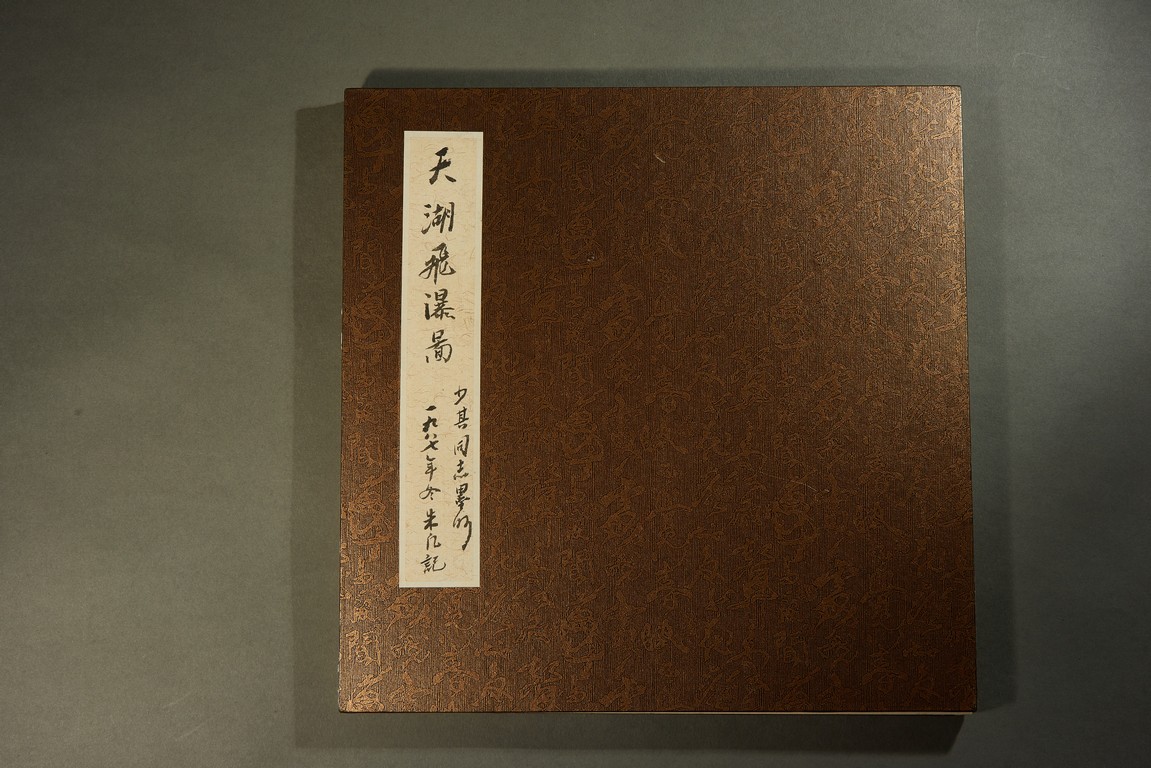 天湖飛瀑圖
少其同志墨妙
一九八七年冬朱凡記